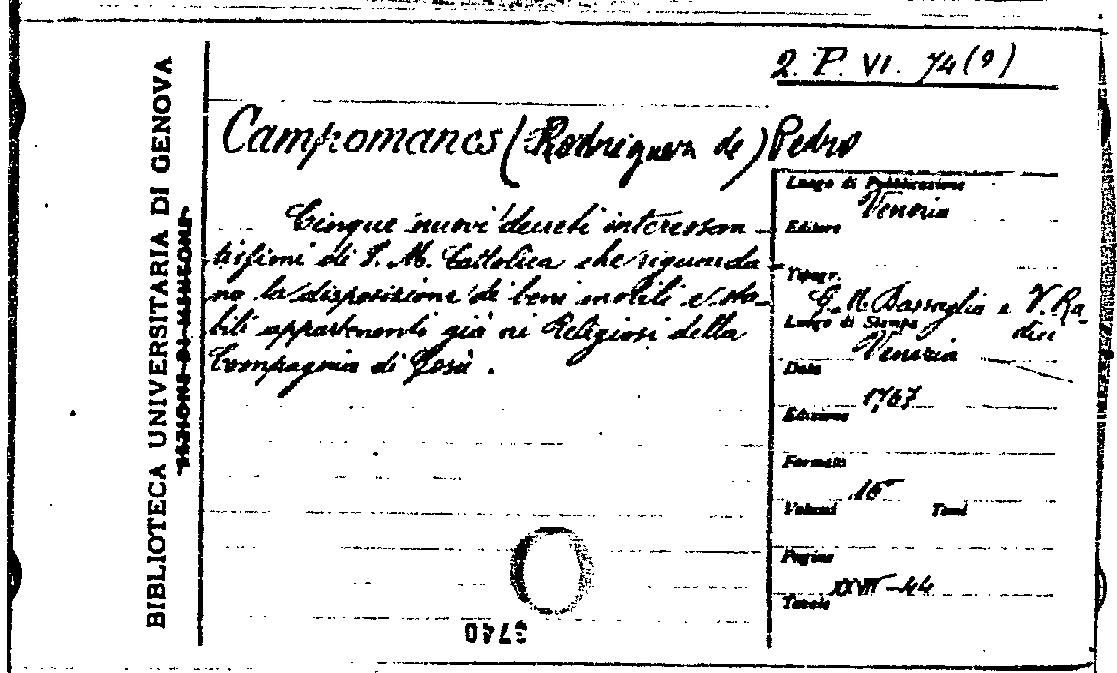 2. P. VI. 74(9)
BIBLIOTECA UNIVERSITARIA DI GENOVA
Campomanes (Rodriguez de) Pedro
Cinque nuovi decreti interessan
tissimi di S. M. Cattolica che riguarda
no la disposizione di beni mobili e sta-
bili appartenenti già ai Religiosi della
Compagnia di Gesù.
Luogo di Pubblicazione
Venezia
Editore
Tipogr.
G. M. Bassaglia e V. Ra-
dici
Luogo di Stampa
Venezia
Data
1767
Edizione
Formato
Volumi
Tomi
Pagine
XXVII-44
Tavole
3740